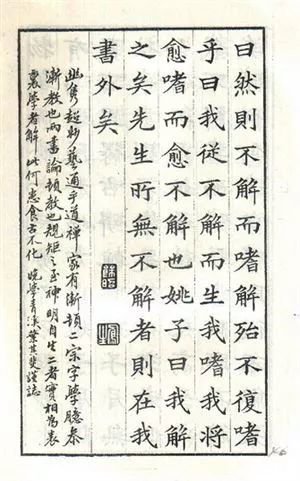 曰然則不解而嗜解殆不復嗜
乎曰我從不解而生我嗜我將
愈嗜而愈不解也姚子曰我解
之矣先生所無不解者則在我
書外矣
此雋超妙藝通乎道禪家有漸頓二宗字學臨摹
漸教也而書論頓教也規矩之至神明自生二者實相為表
裏學者解此何患食古不化 晚學青溪葉其斐謹誌